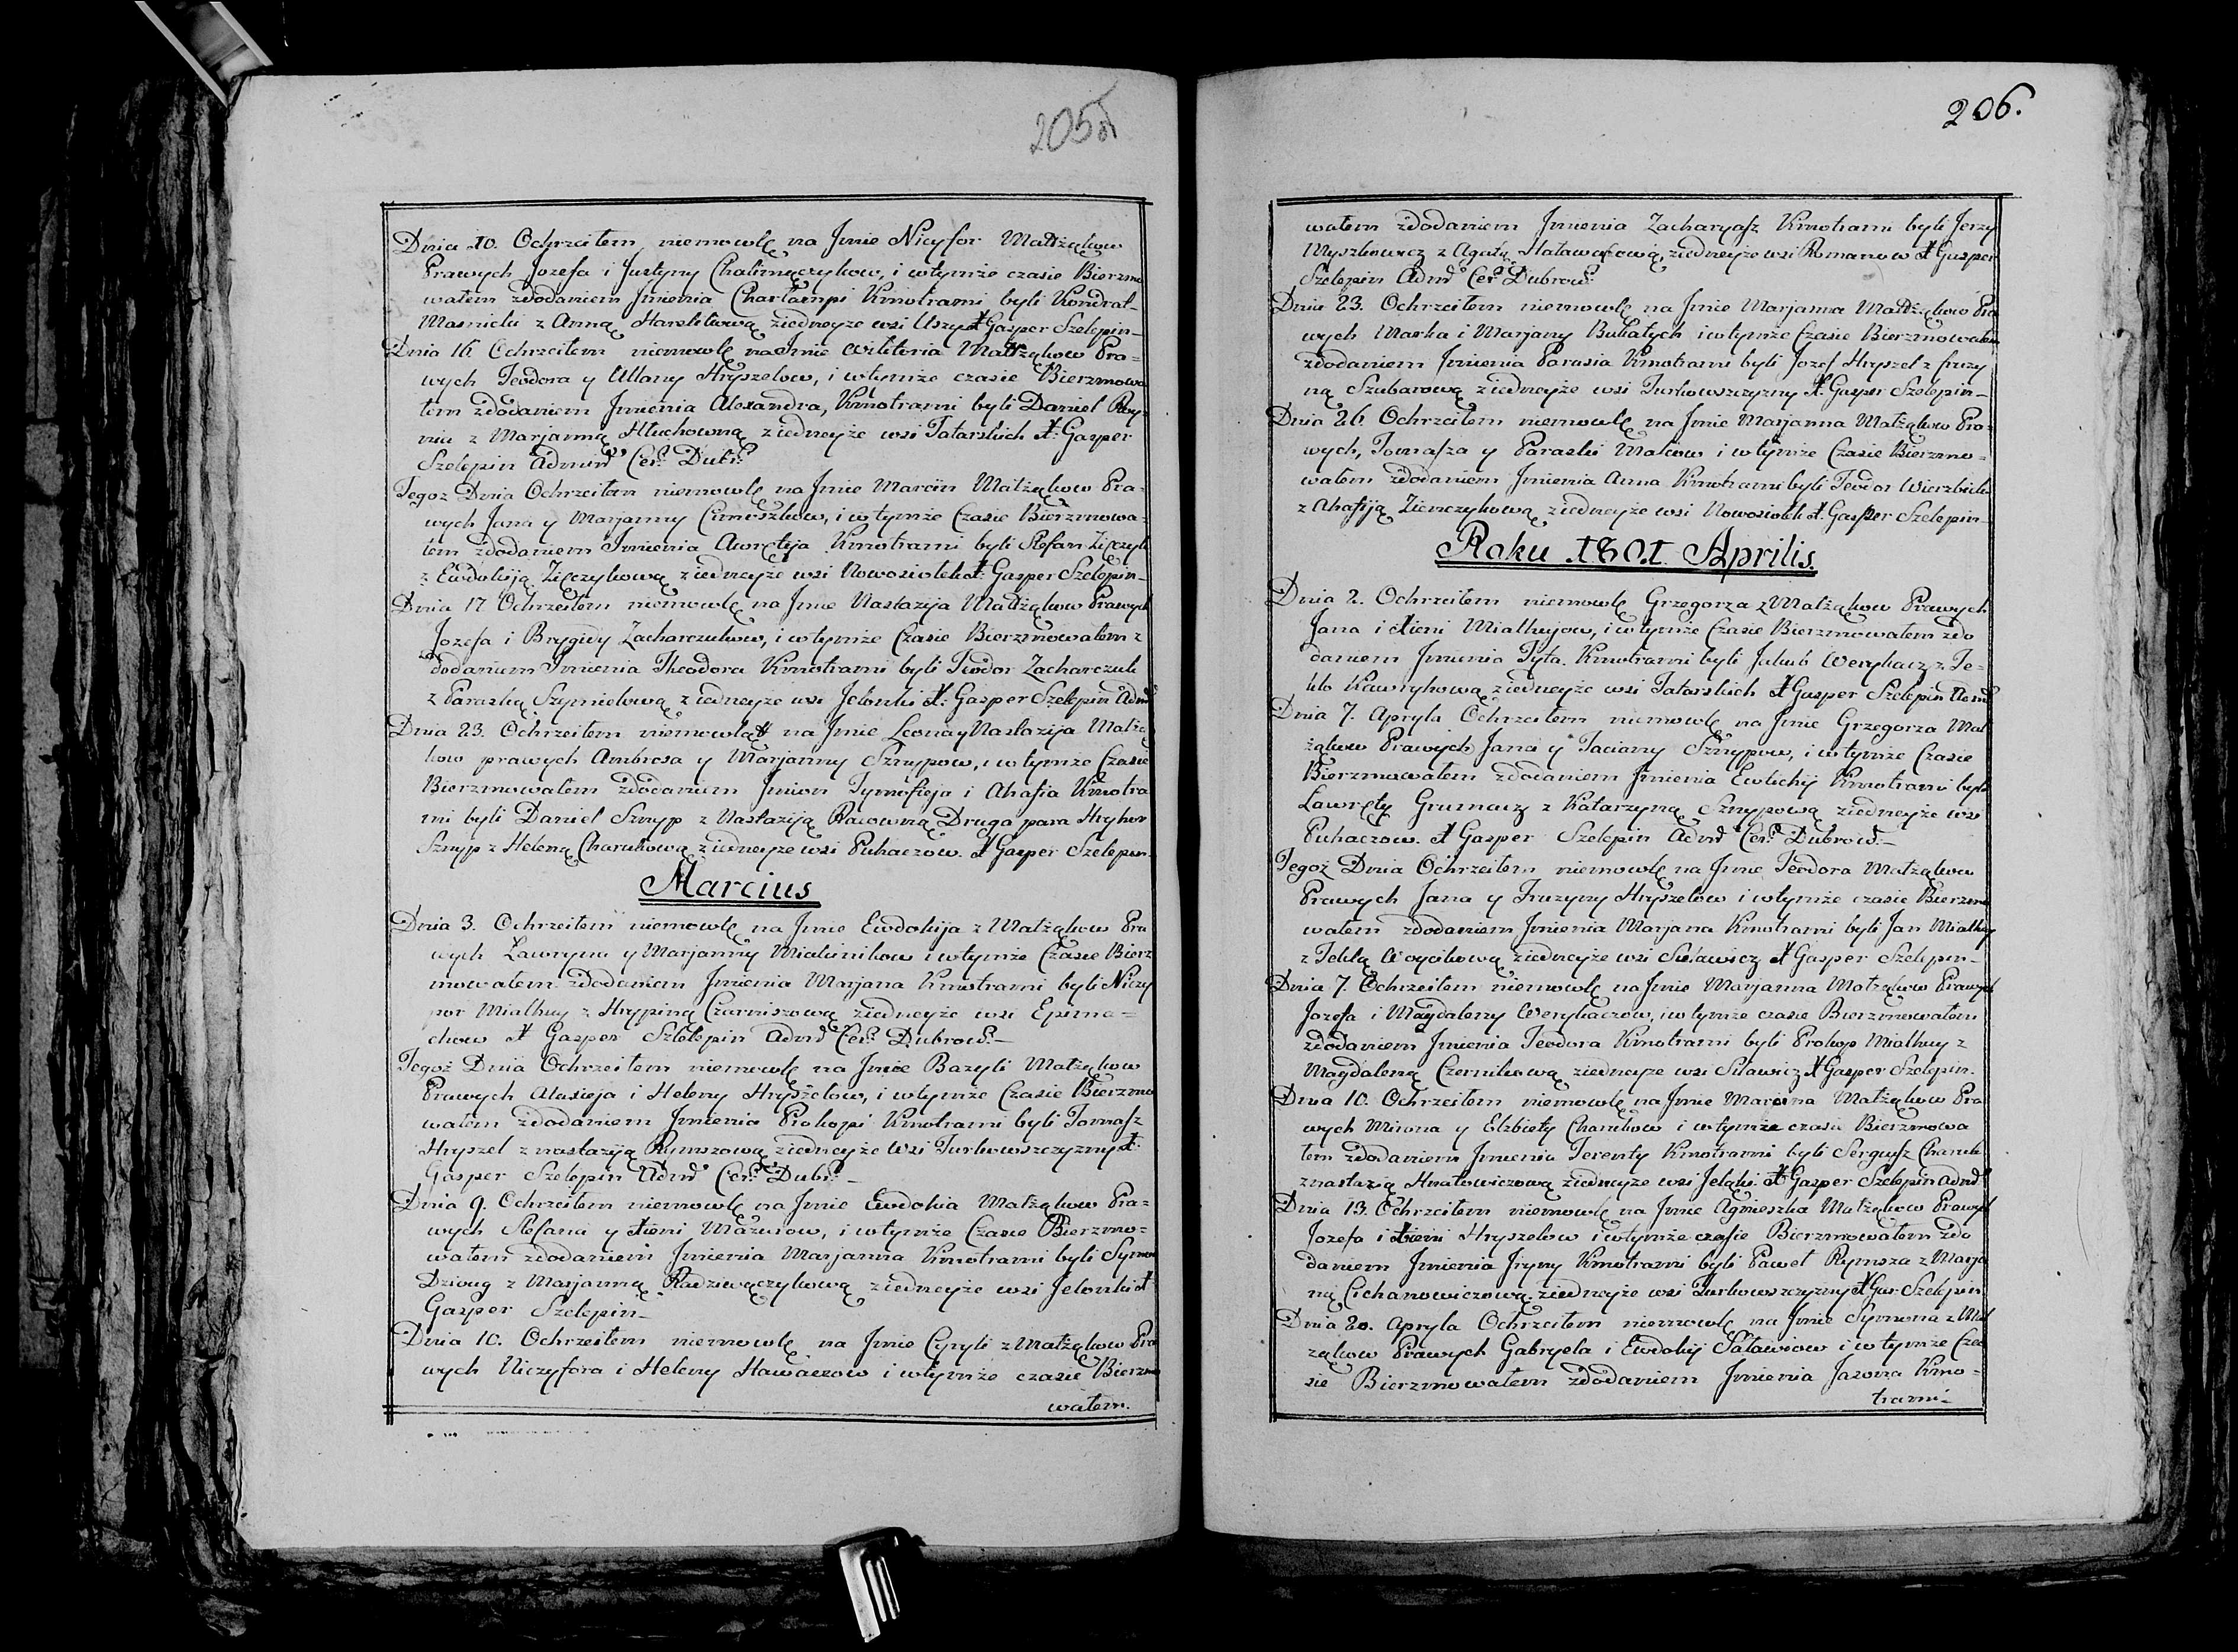 205
Dnia 10. Ochrzciłem niemowlę na Jmie Nicyfor Małżąkow
Prawych Jozefa i Justyny Chalimączykow, i wtymże czasie Bierzmo
wałem zdodaniem Jmienia Charłampi Kmotrami byli Kondrat
Masnicki z Anną ziedneyże wsi X Gasper Szelepin
Dnia 16. Ochrzciłem niemowlę na Jmie Wiktoria Małżąkow Pra=
wych Teodora y Ullany Hryszelow, i wtymże czasie Bierzmowa
łem zdodaniem Jmienia Alexandra, Kmotrami byli Daniel
z Marjanną Hłuchowną ziedneyże wsi Tatarskich X: Gasper
Szelepin Admr Cer: Dubr:
Tegoż Dnia Ochrzciłem niemowlę na Jmie Marcin Małżąkow Pra-
wych Jana y Marjanny Cimoszkow, i wtymże Czasie Bierzmowa-
łem zdodaniem Jmienia Kmotrami byli Stefan
z Ewdokiją ziedneyże wsi Nowosiołek X: Gasper Szelepin
Dnia 17 Ochrzciłem niemowlę na Jmie Nastazija Małżąkow Prawych
Jozefa i Brygidy Zacharczukow, i wtymże Czasie Bierzmowałem z
dodaniem Jmienia Theodora Kmotrami byli Teodor Zacharczuk
z Paraską Szymielową ziedneyże wsi Jelonki X: Gasper Szelepin Admr
Dnia 23. Ochrzciłem niemowląt na Jmie Leona y Nastazija Małżą
kow prawych Ambrosa y Marjanny Sznypow, i wtymże Czasie
Bierzmowałem zdodaniem Jmion Tymofieja i Ahafia Kmotra
mi byli Daniel Sznyp z Nastaziją Racowną Druga para Hryhor
Sznyp z Heleną Charukową ziedneyże wsi Puhaczow. X Gasper Szelepin
Marcius
Dnia 3. Ochrzciłem niemowlę na Jmie Ewdokija z Małżąkow Pra
wych Ławryna y Marjanny i wtymże Czasie Bierz
mowałem zdodaniem Jmienia Marjana Kmotrami byli Niczy
por Miałkuy z Hrypiną Czarniszową ziedneyże wsi Epima=
chow X Gasper Szelepin Admr Cer: Dubrow:
Tegoż Dnia Ochrzciłem niemowlę na Jmie Bazyli Małżąkow
Prawych Alasieja i Heleny Hryszelow, i wtymże Czasie Bierzmo
wałem zdodaniem Jmienia Prokopi Kmotrami byli Tomasz
Hryszel z nastaziją Rymszową ziedneyże wsi Turkowszczyzny X:
Gasper Szelepin Admr Cer: Dubr:
Dnia 9. Ochrzciłem niemowlę na Jmie Ewdokia Małżąkow Pra=
wych Stefana y Xieni Mazurow, i wtymże Czasie Bierzmo=
wałem zdodaniem Jmienia Marjanna Kmotrami byli Symon
Dzioug z Marjanną Radziwączykową ziedneyże wsi Jelonki X
Gasper Szelepin
Dnia 10. Ochrzciłem niemowlę na Jmie Cyryli z Małżąkow Pra
wych Niczyfora i Heleny Hawaczow i wtymże czasie Bierzmo
wałem.
206.
wałem zdodaniem Jmienia Zacharyasz Kmotrami byli Jerzy
Myszkowicz z Agatą ziedneyże wsi Romanow X Gasper
Szelepin Admr Cer: Dubrow:
Dnia 23. Ochrzciłem niemowlę na Jmie Marjanna Małżąkow Pra
wych Marka i Marjany Bukatych i wtymże Czasie Bierzmowałem
zdodaniem Jmienia Parasia Kmotrami byli Jozef Hryszel z fruzy
ną Szubarową ziedneyże wsi Turkowszczyzny X. Gasper Szelepin
Dnia 26. Ochrzciłem niemowlę na Jmie Marjanna Małżąkow Pra=
wych, Tomasza y Paraski Makow i wtymże Czasie Bierzmo=
wałem zdodaniem Jmienia Anna Kmotrami byli Teodor Wierzbicki
z Ahafiją Zienczykową ziedneyże wsi Nowosiołek X. Gasper Szelepin
Roku 1801. Aprilis.
Dnia 2. Ochrzciłem niemowlę Grzegorza z Małżąkow Prawych
Jana i Xieni Miałkujow, i wtymże Czasie Bierzmowałem zdo
daniem Jmienia Tyta. Kmotrami byli Jakub Werykacz z Te=
klo Kawrykową ziedneyże wsi Tatarskich X Gasper Szelepin Admr
Dnia 7. Apryla Ochrzciłem niemowlę na Jmie Grzegorza Mał
żąkow Prawych Jana y Taciany Sznypow, i wtymże Czasie
Bierzmowałem zdodaniem Jmienia Ewtichij Kmotrami byli
Ławręty Grumacz z Katarzyną Sznypową ziedneyże wsi
Puhaczow. X Gasper Szelepin Admr Cer: Dubrow:
Tegoż Dnia Ochrzciłem niemowlę na Jmie Teodora Małżąkow
Prawych Jana y Fruzyny Hryszelow i wtymże czasie Bierzmo
wałem zdodaniem Jmienia Marjana Kmotrami byli Jan Miałkuy
z Teklą Woycikową ziedneyże wsi Sieławicz X Gasper Szelepin
Dnia 7. Ochrzciłem niemowlę na Jmie Marjanna Małżąkow Prawych
Jozefa i Magdaleny Werykaczow, i wtymże czasie Bierzmowałem
zdodaniem Jmienia Teodora Kmotrami byli Prokop Miałkuy z
Magdaleną Czernikową ziedneyże wsi Silawicz X Gasper Szelepin.
Dnia 10. Ochrzciłem niemowlę na Jmie Marcina Małżąkow Pra
wych Mirona y Elzbiety Charukow i wtymże czasie Bierzmowa
łem zdodaniem Jmienia Terenty Kmotrami byli Sergusz Charuk
z nastazią Hnatowiczową ziedneyże wsi Jeląki X Gasper Szelepin Admr
Dnia 13. Ochrzciłem niemowlę na Jmie Agnieszka Małżąkow Prawych
Jozefa i Xieni Hryszelow i wtymże czasie Bierzmowałem zdo
daniem Jmienia Jryny Kmotrami byli Paweł Rymsza z Marja
ną Cichanowiczową ziedneyże wsi Turkowszczyzny X Gas: Szelepin
Dnia 20. Apryla Ochrzciłem niemowlę na Jmie Symona z Mał
żąkow Prawych Gabryela i Ewdokij Satawiow i wtymże Cza
sie Bierzmowałem zdodaniem Jmienia Jazona Kmo=
trami=